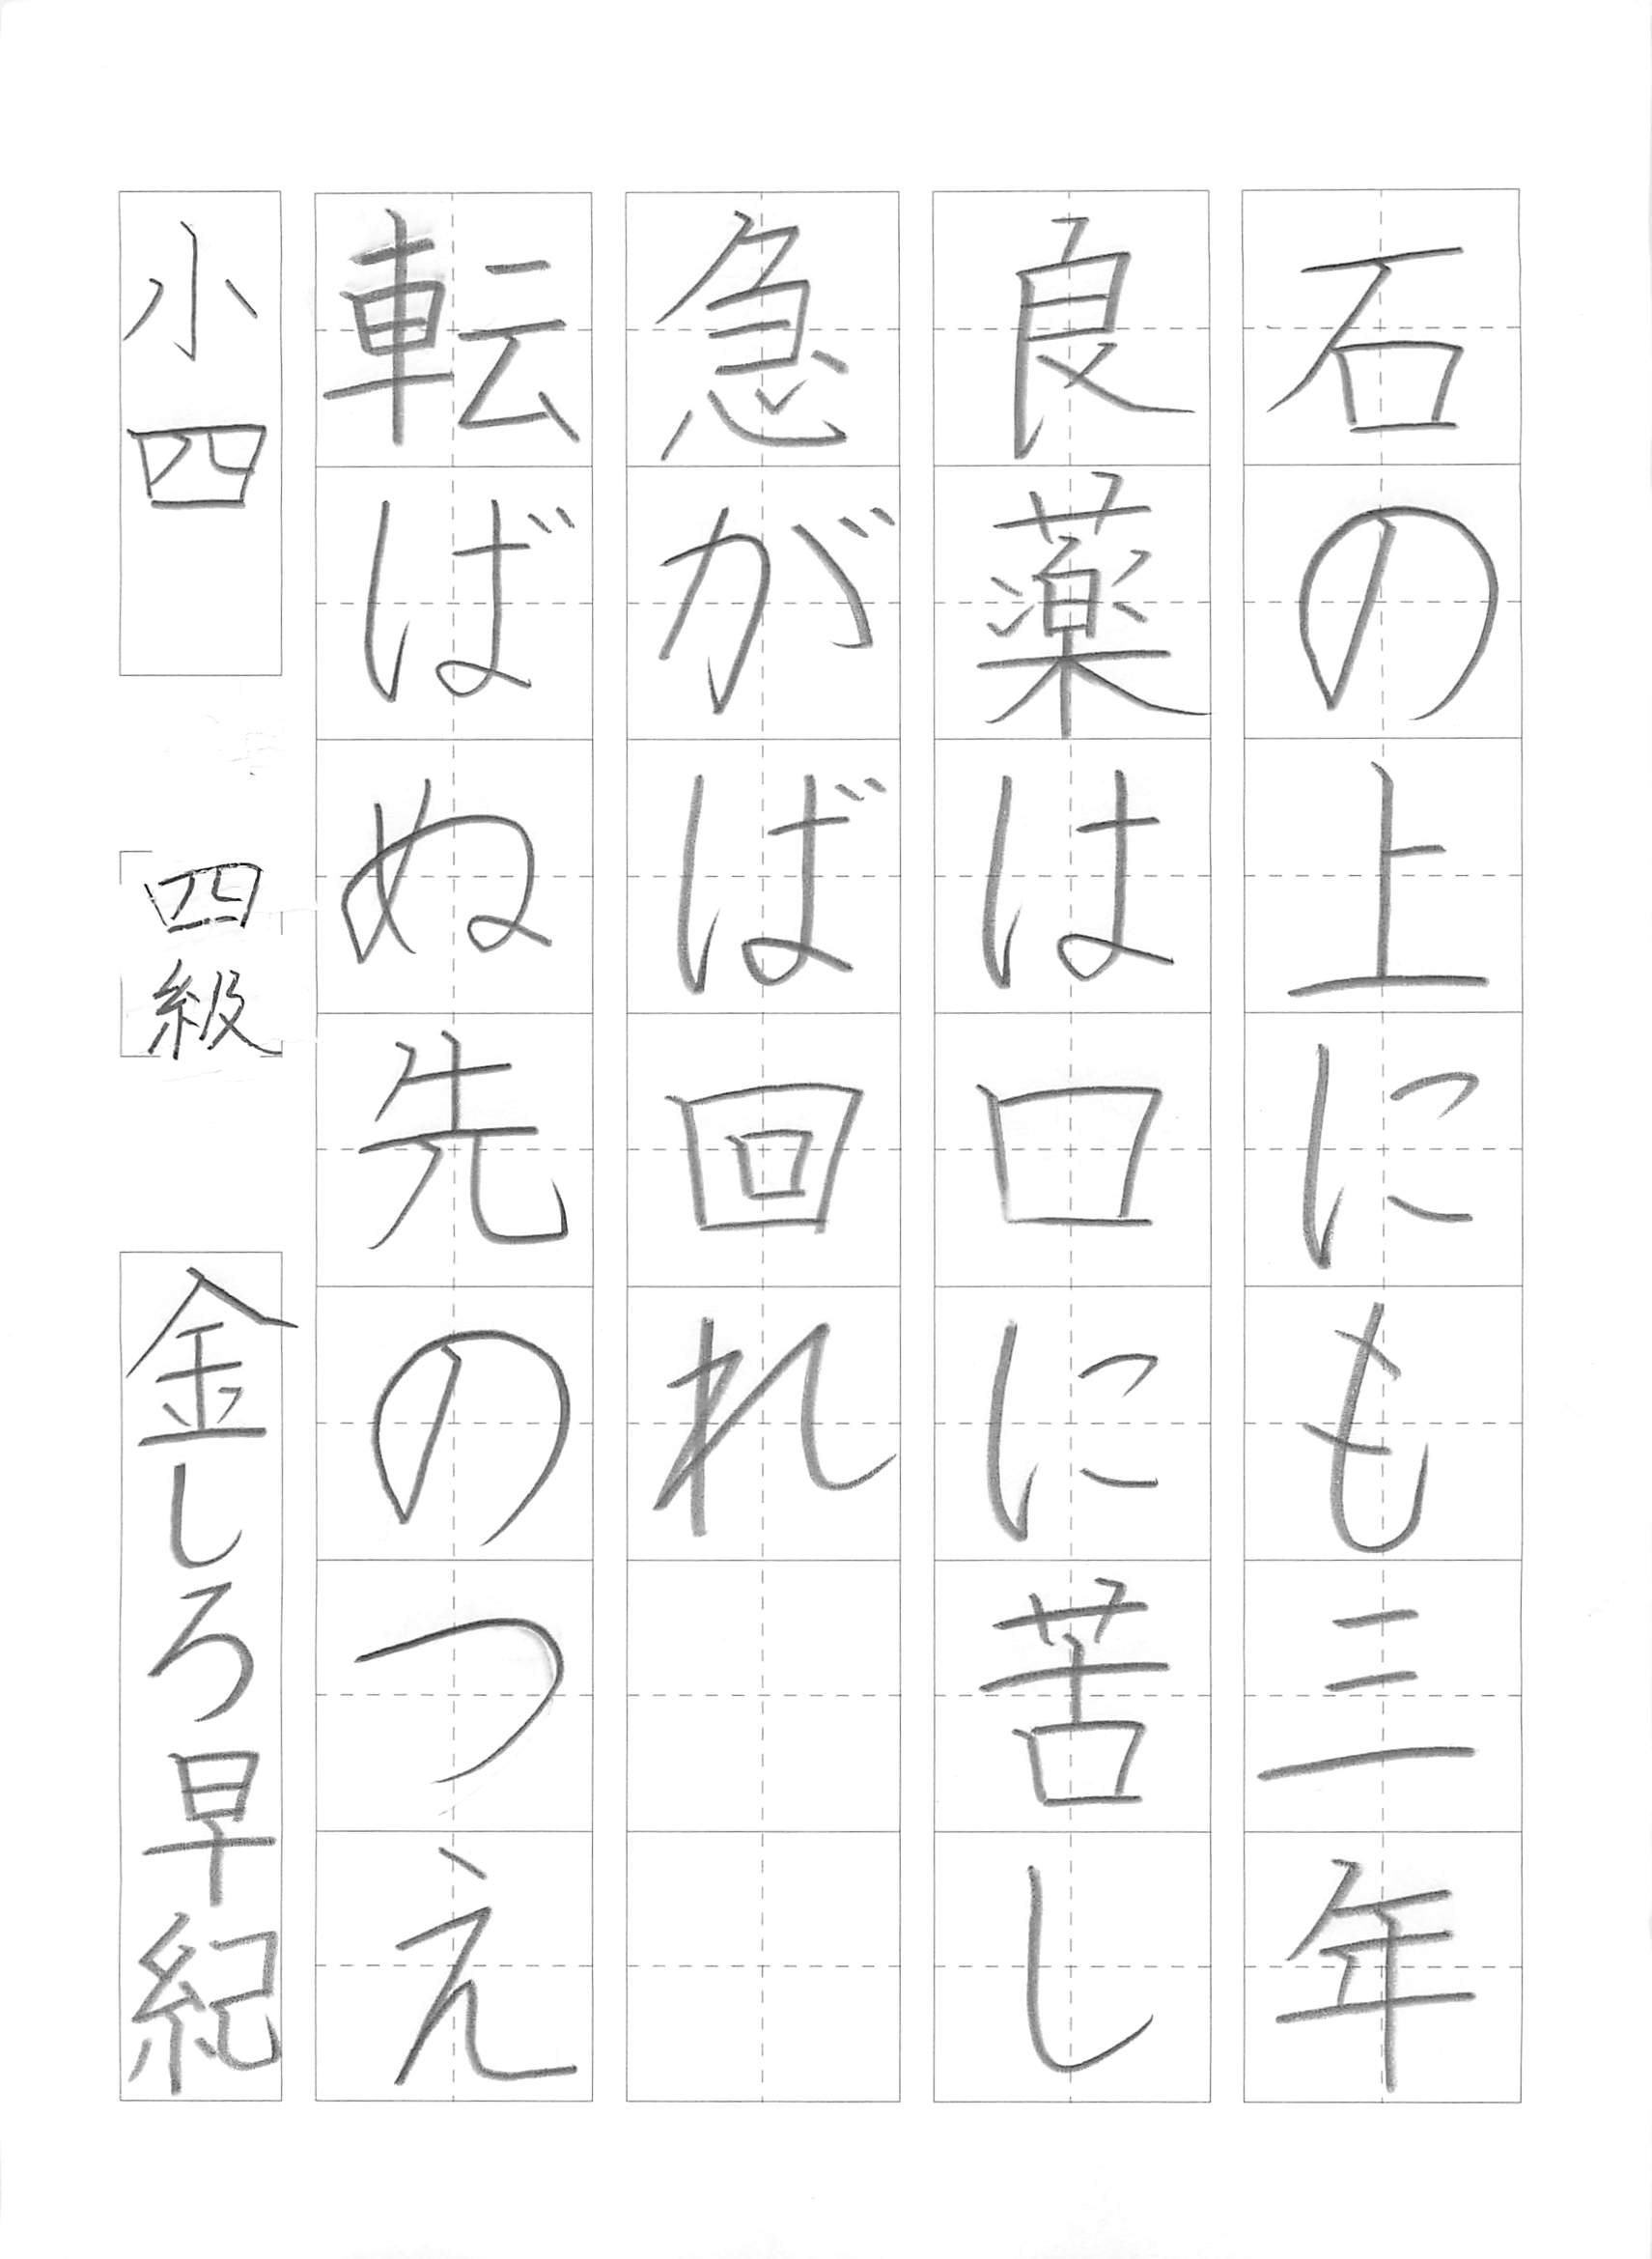 石の上にも三年
良薬は口に苦し
急がば回れ
転ばぬ先のつえ
小四 四級 金しろ早紀